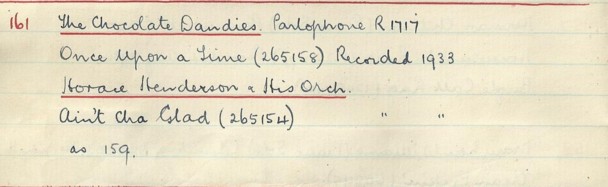 161 The Chocolate Dandies. Parlophone R 1717
Once Upon a Time (265158) Recorded 1933
Horace Henderson & His Orch.
Ain't Cha Glad (265154) " "
as 159.